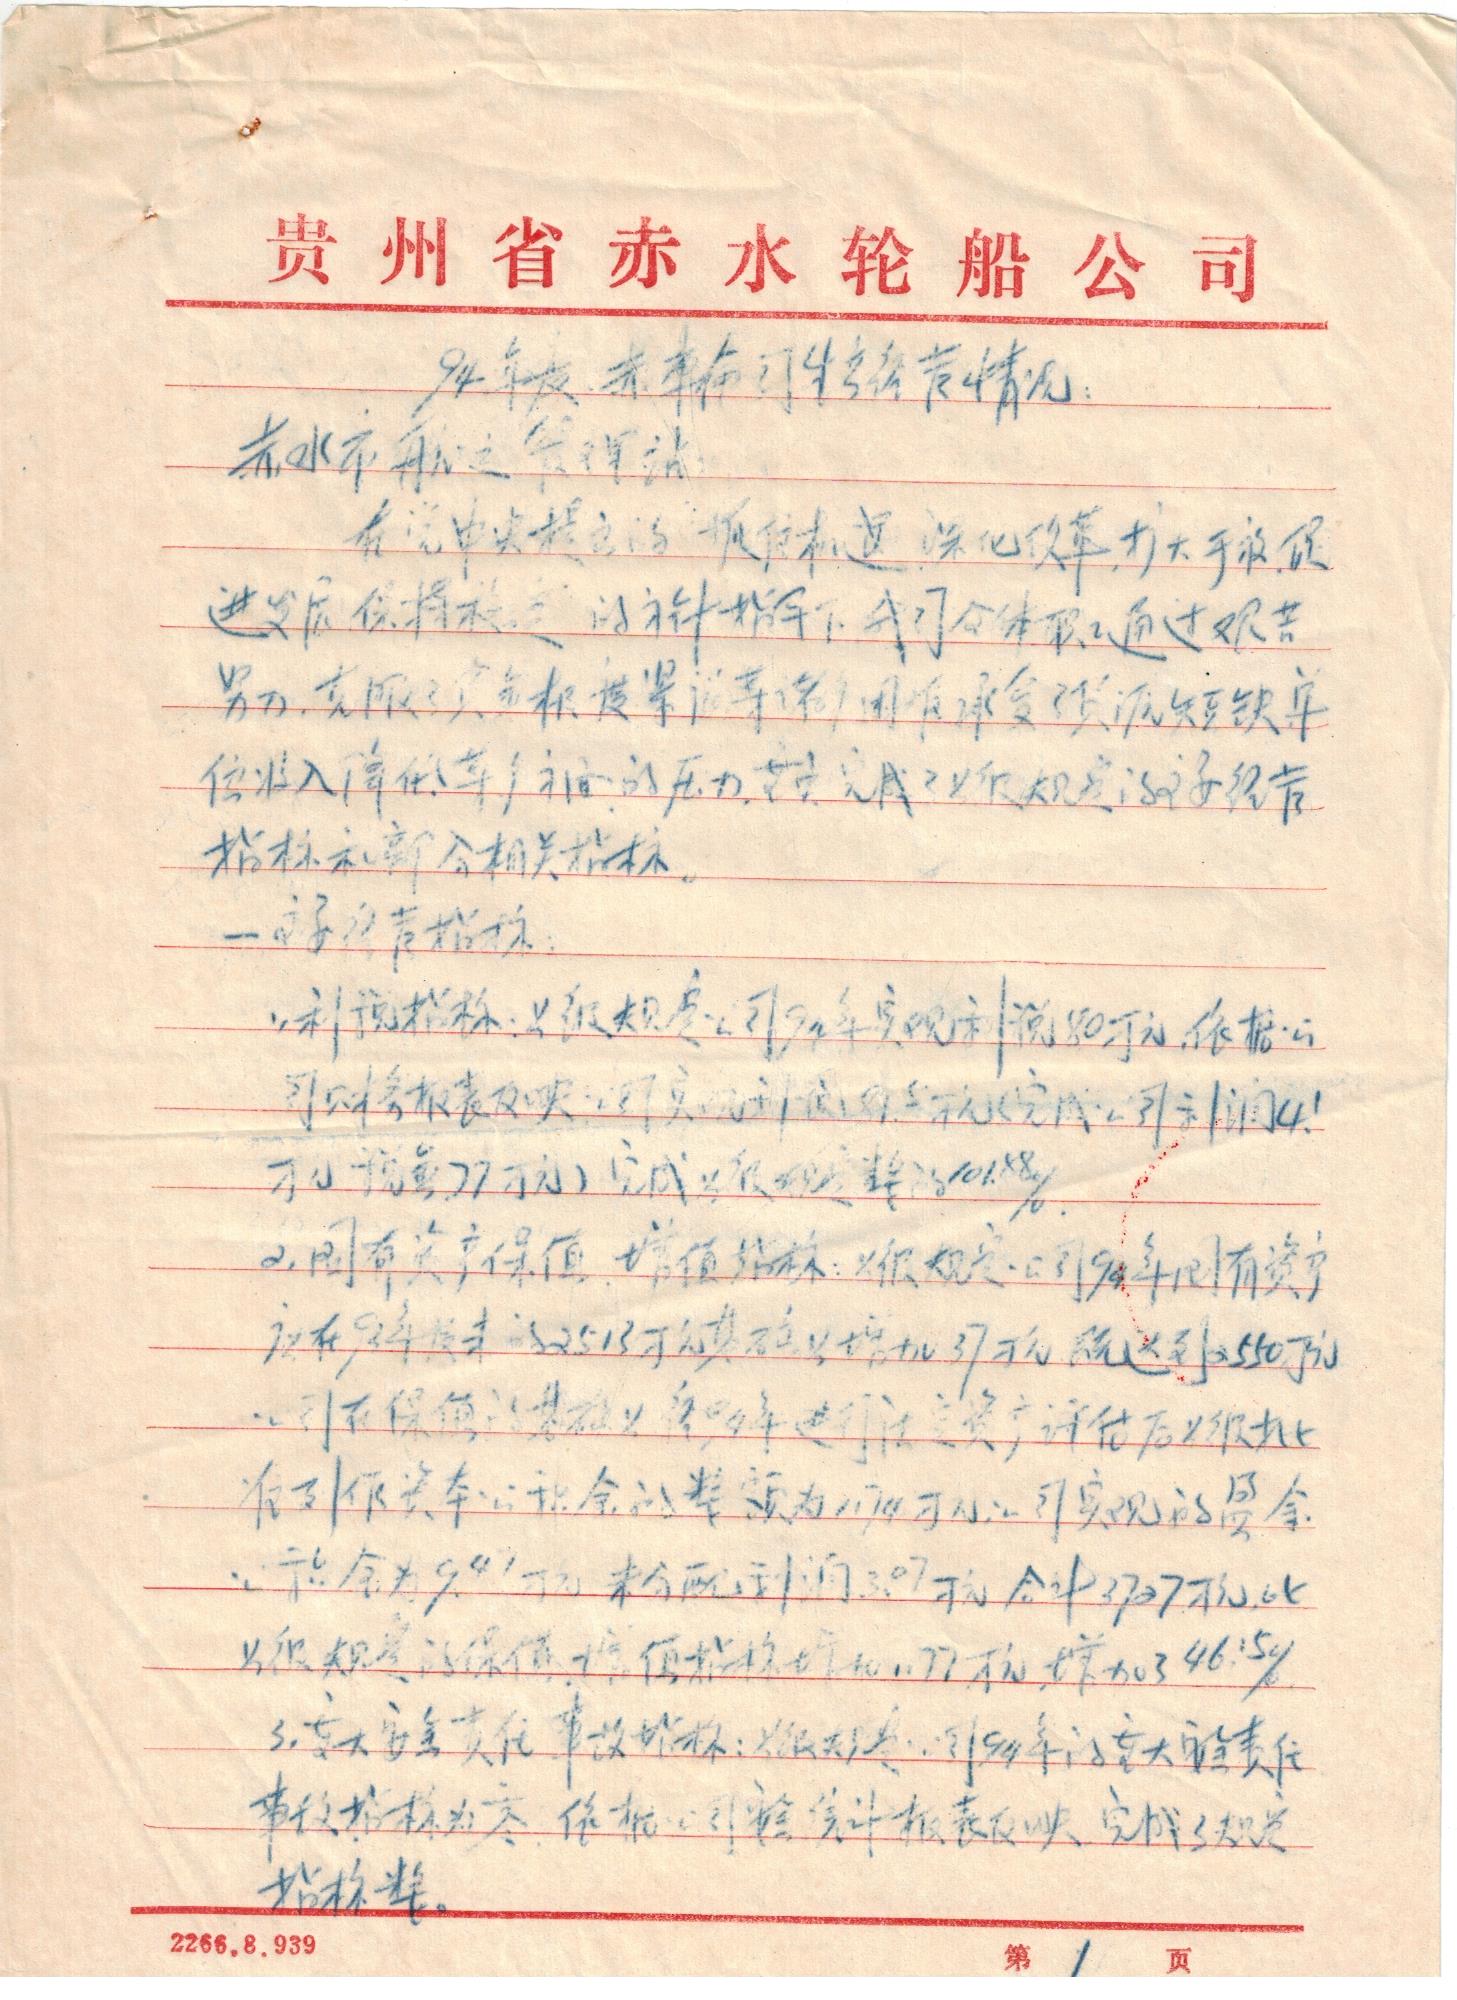 贵州省赤水轮船公司
94年度赤轮司生产经营情况:
赤水市航运管理站
在党中央提出的抓住机遇、深化改革、扩大开放、促
进发展、保持稳定的方针指导下,我司全体职工通过艰苦
努力,克服了资金极度紧张等诸多困难,承受了货源短缺、单
位收入降低等多方面的压力,较好完成了上级规定的主要经营
指标和部分相关指标。
一、主要经营指标:
1、利税指标:上级规定公司94年实现利税80万元,依据公
司财务报表反映,公司实现利税81.5万元(完成公司利润4.1
万元,税金77万元)完成上级规定数的101.88%.
2、国有资产保值、增值指标:上级规定公司94年国有资产
应在93年度末的2513万元基础上增加37万元,既达到2550万元
公司在保值的基础上,经94年进行法定资产评估后上级批
准可作资本公积金的数额为1174万元,公司实现的盈余
公积金为9.47万元,未分配利润3.07万元,合计3727万元,比
上级规定的保值、增值指标增加1177万元,增加了46.15%
3、重大安全责任事故指标:上级规定公司94年的重大安全责任
事故指标为零,依据公司安全统计报表反映,完成了规定
指标数。
2266.8.939
第 1 页